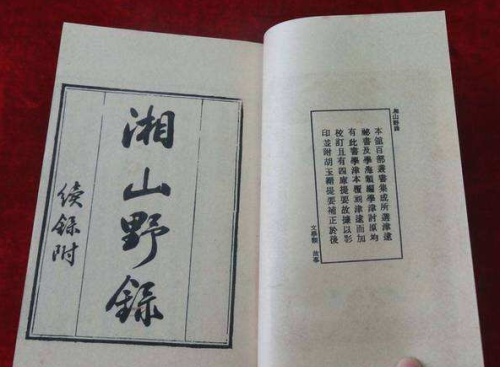 湘山野錄
本館百部叢書集成所選津逮
祕書及學海類編學津討原均
有此書學津本覆刻津逮而加
校訂且有四庫提要故據以影
印並附胡玉縉提要補正於後
文學類 故事
湘山野錄
續錄附